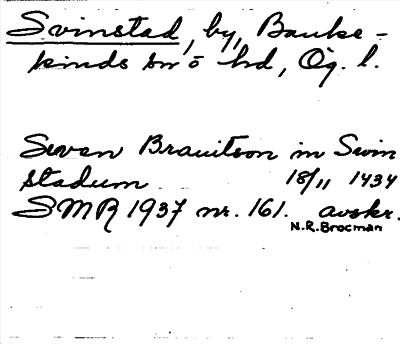 Svinstad, by, Banke-
kinds sn o hd, Ög. l.
Swen Brauitson in Swin
stadum 18/11 1434
SMR 1937 nr. 161. avskr.
N.R.Brocman